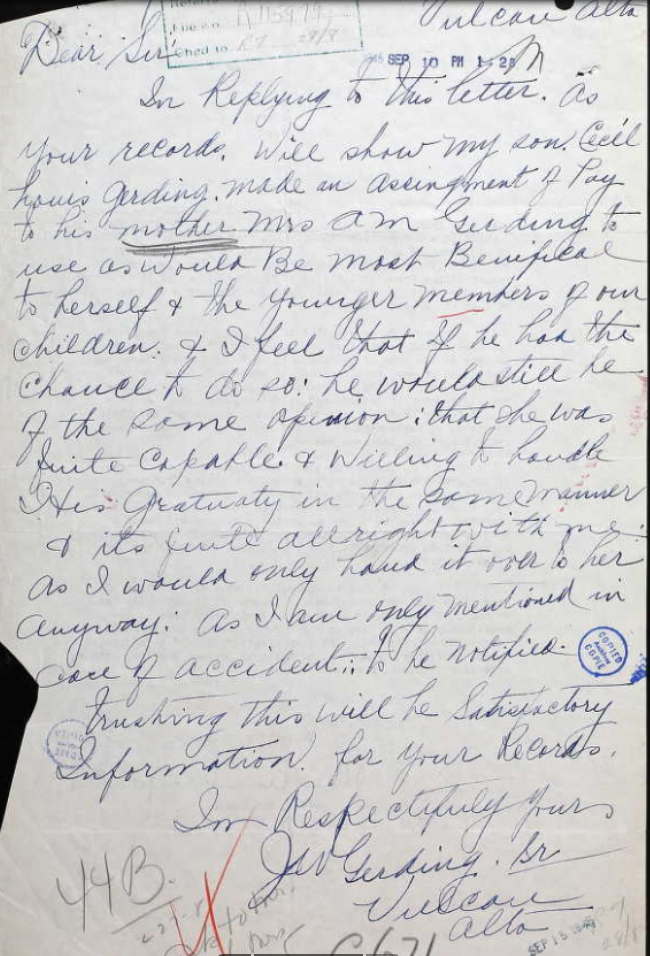 Vulcan Alta
File No. R115979
ched to R7 28/8
SEP 10 PM 1 28
Dear Sir
In Replying to this letter. As
your records. Will show my son. Cecil
Louis Gerding. made an assingment of Pay
to his mother Mrs A M Gerding to
use as Would Be most Benifical
to herself & the younger members of our
children. & I feel that If he had the
chance to do so: he would still be
of the same opinion: that she was
quite capable & Willing to handle
His Gratuaty in the same manner
& its quite allright with me:
As I would only hand it over to her
anyway: As I am only mentioned in
case of accident:. to be notified.
COPIED
COPIE
Trusting this will be Satisfactory
Information. for your Records.
Im Respectifuly Yours
Gerding. Sr
Vulcan
Alta
44B.
SEP 15
28/8
C671